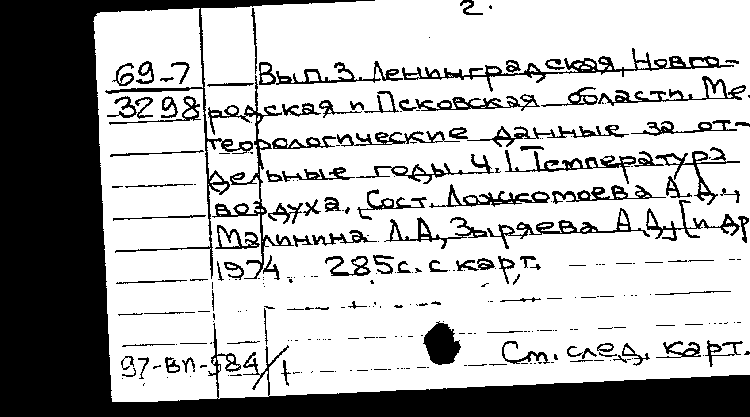 2.
69-7 Вып. 3. Ленинградская, Новго-
3298 родская и Псковская области. Ме-
теорологические данные за от-
дельные годы. Ч. 1. Температура
воздуха. [Сост. Ложкомоева А. Д.,
Малинина Л. А., Зыряева А. Д.] [и др
1974. 285 с. с карт.
97-ВП-584/1 См. след. карт.